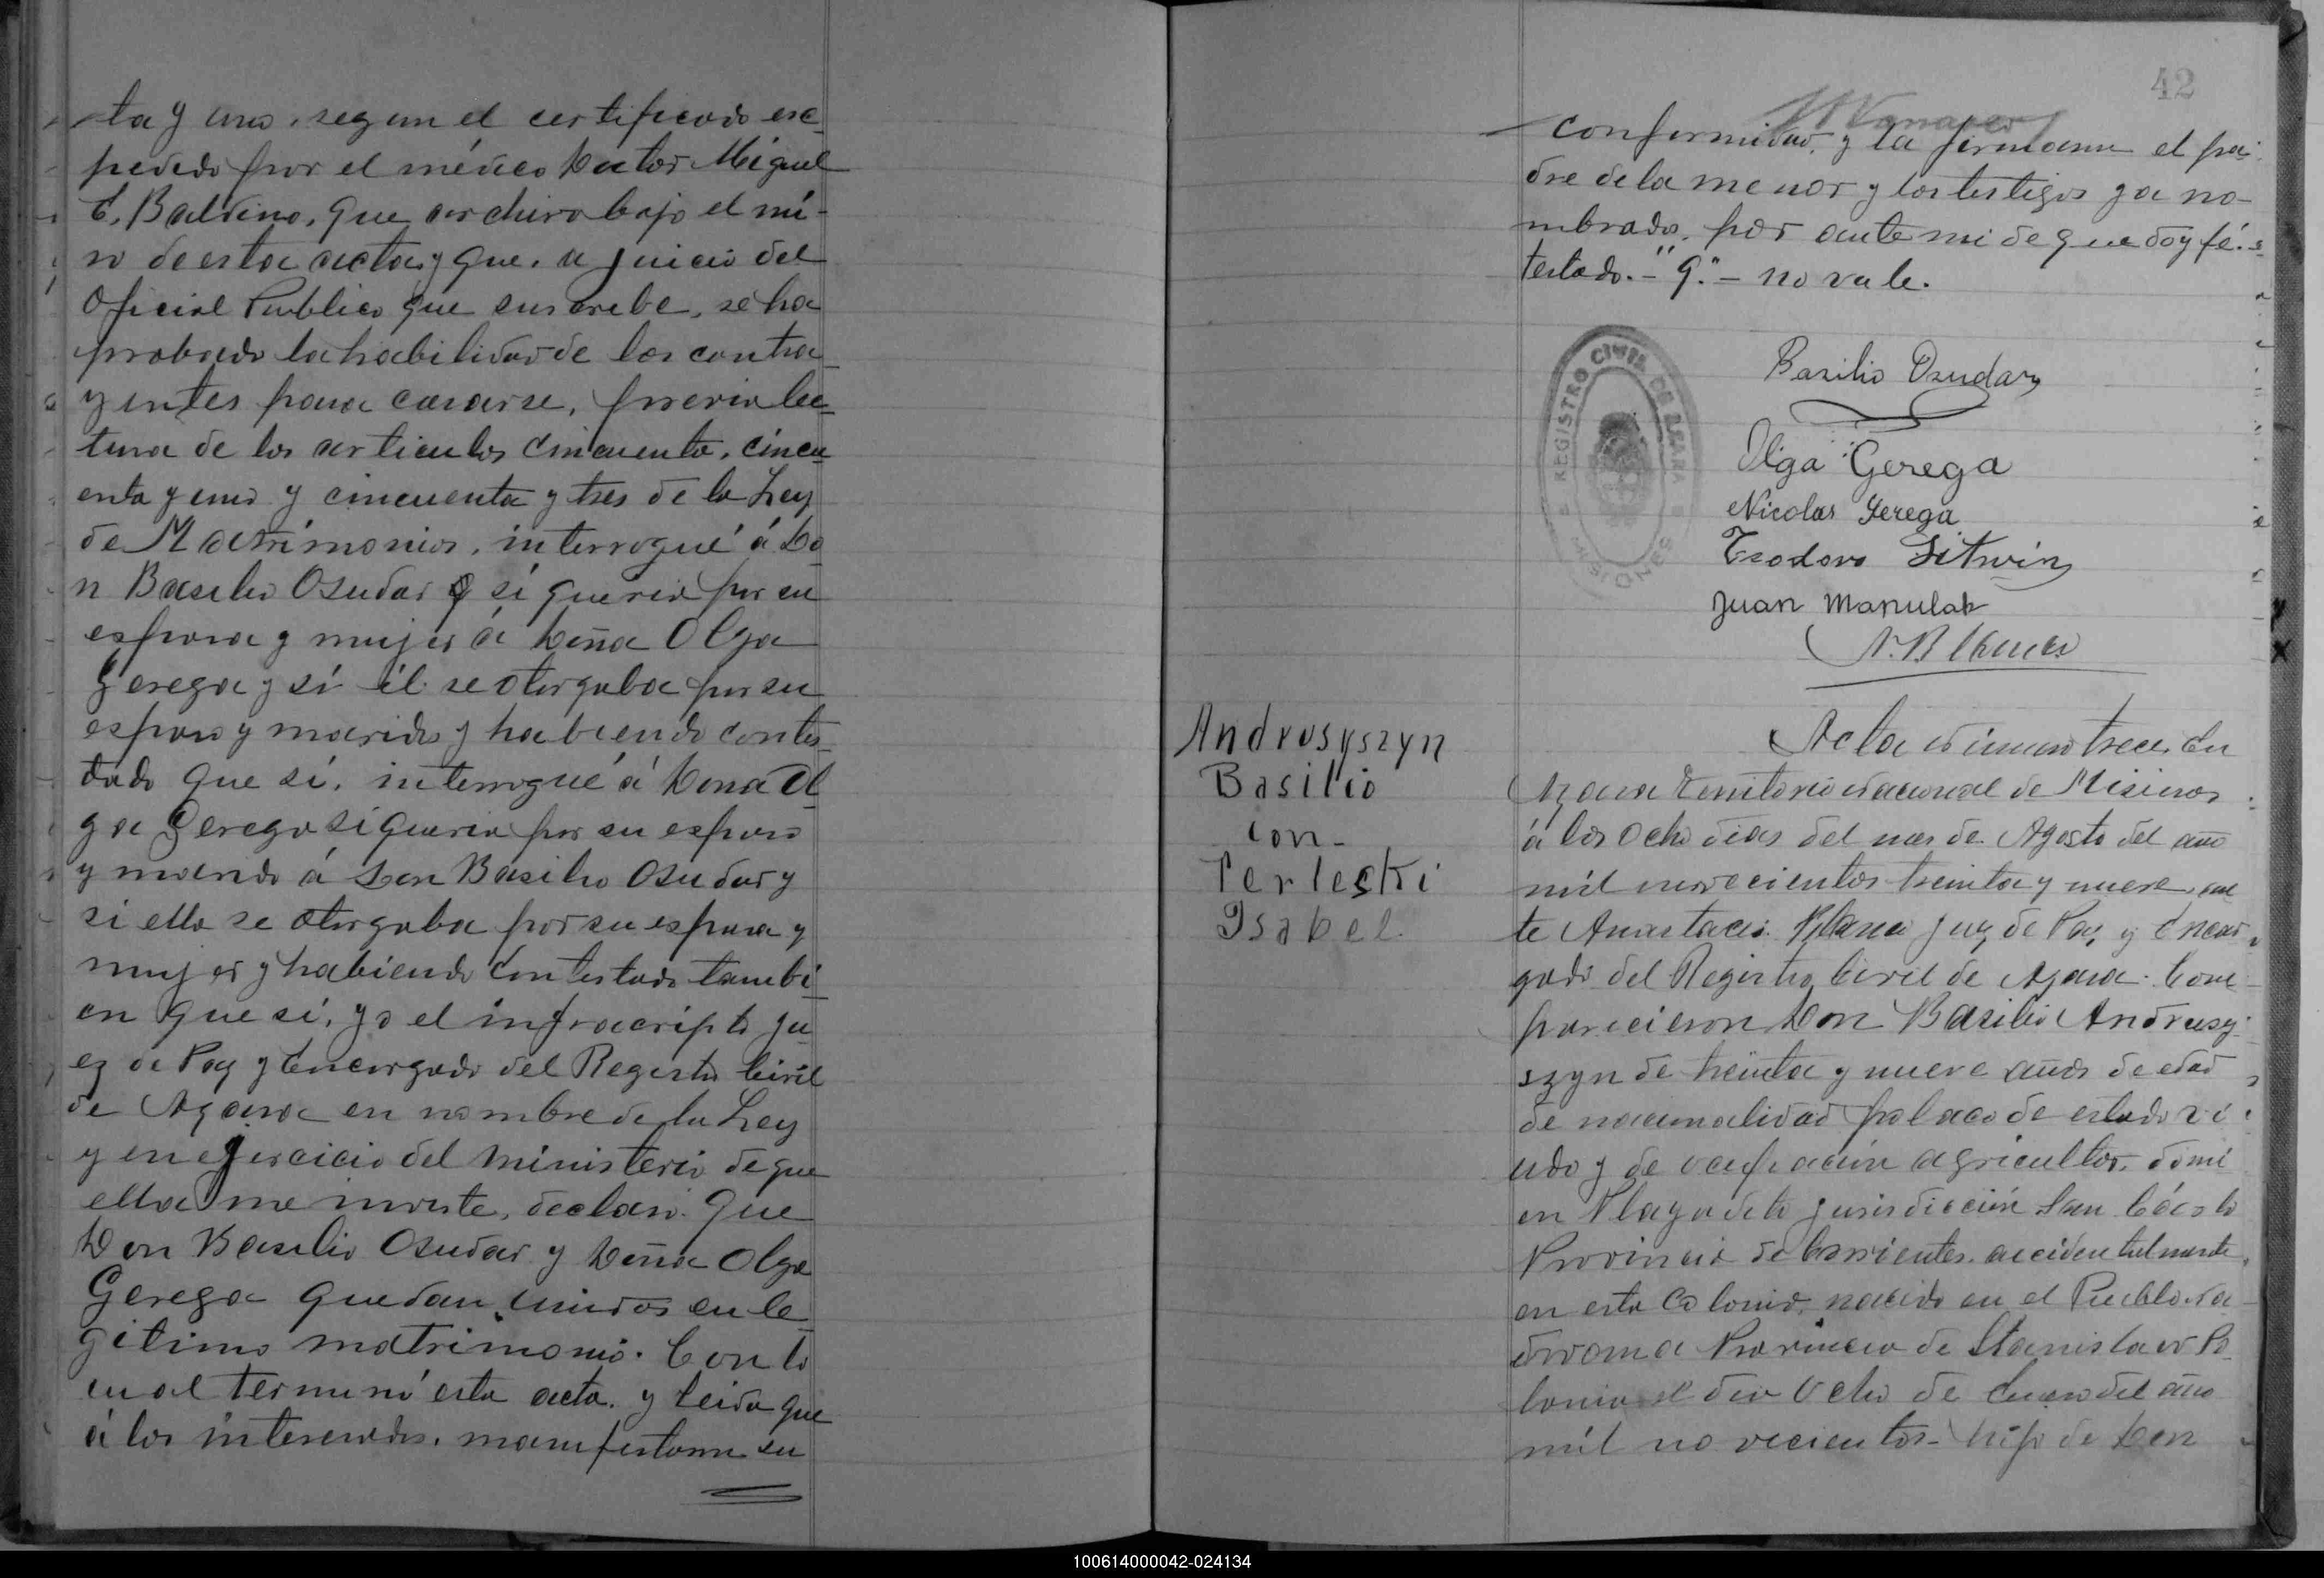 ta y uno, segun el certificado esc-
pedido por el médico Doctor Miguel
C. Baldino, que archivo bajo el mi-
no de esta acta y que, a juicio del
Oficial Publico que suscribe, se ha
probado la habilidad de los contra-
yentes para casarse, previa lec-
tura de los articulos cincuenta, cincu-
enta y uno y cincuenta y tres de la Ley
de Matrimonios, interrogué á Do-
n Basilio Osudar si queria por su
esposa y mujer á Doña Olga
Gerega y si él se otorgaba por su
esposo y marido y habiendo contes-
tado que si, interrogué á Dona Ol-
ga Gerega si queria por su esposo
y marido á Don Basilio Osudar y
si ella se otorgaba por su esposa y
mujer y habiendo contestado tambi-
en que si, yo el infrascripto Ju-
ez de Paz y Encargado del Registro Civil
de Azara en nombre de la Ley
y en ejercicio del ministerio de que
ella me inviste, declaro que
Don Basilio Osudar y Doña Olga
Gerega quedan unidos en le-
gitimo matrimonio. Con lo
cual terminó esta acta. y leida que
á los interesados, manifestaron su
42
conformidad, y la firmaron el pa-
dre de la menor y los testigos ya no-
mbrados, por ante mi de que doy fé.
testado.-"G."- no vale.
REGISTRO CIVIL DE AZARA
MISIONES
Basilio Osudar
Olga Gerega
Nicolas Gerega
Teodoro Litwin
Juan Manulak
A. Blanco
Androsyszyn
Basilio
con-
Perleski
Isabel.
Acta número trece. En
Azara Territorio Nacional de Misiones
á los ocho dias del mes de Agosto del año
mil novecientos treinta y nueve, an-
te Anastacio Blanco Juez de Paz y Encar-
gado del Registro Civil de Azara. Com-
parecieron Don Basilio Andrusy-
szyn de treinta y nueve años de edad
de nacionalidad polaco de estado vi-
udo y de ocupacion agricultor. domi
en Playadito jurisdicción San Cárlos
Provincia de Corrientes. accidentalmente
en esta Colonia, nacido en el Pueblo
Provincia de Stanislaw Po-
lonia el dia Ocho de Enero del año
mil novecientos- hijo de Don
100614000042-024134